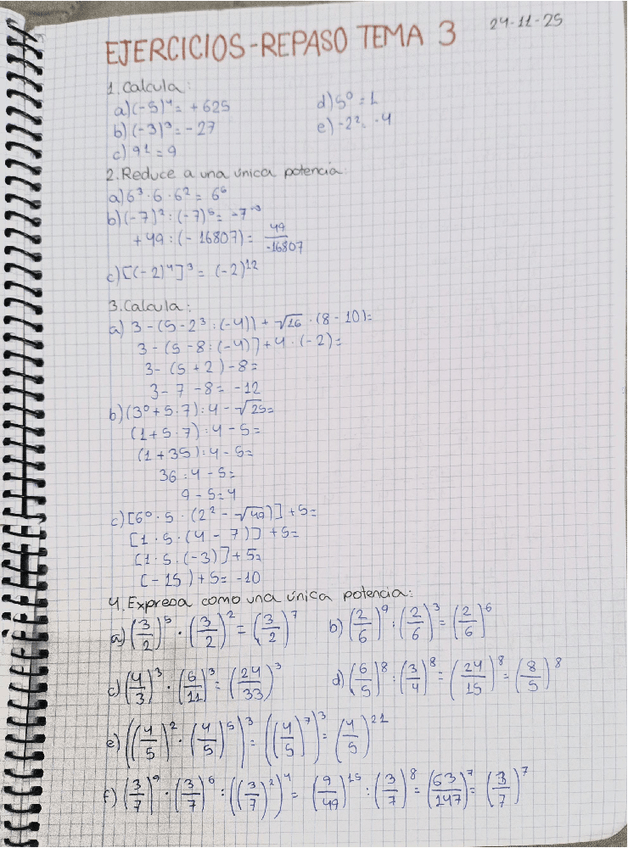 EJERCICIOS-REPASO TEMA 3 24-11-25
1. Calcula:
a) (-5)⁴= +625 d) 5⁰ = 1
b) (-3)³= -27 e) -2²= -4
c) 9¹ = 9
2. Reduce a una única potencia:
a) 6³ · 6 · 6² = 6⁶
b) (-7)² : (-7)⁵= -7⁻³
+49 : (-16807) = 49/-16807
c) [(-2)⁴]³ = (-2)¹²
3. Calcula:
a) 3-(5-2³:(-4)) + √16 · (8-10)=
3-(5-8:(-4)]+4·(-2)=
3-(5+2)-8=
3-7-8= -12
b) (3⁰+5·7):4-√25=
(1+5·7):4-5=
(1+35):4-5=
36:4-5=
9-5=4
c) [6⁰·5·(2²-√49)]+5=
[1·5·(4-7)]+5=
[1·5·(-3)]+5=
(-15)+5= -10
4. Expresa como una única potencia:
a) (3/2)⁵ · (3/2)² = (3/2)⁷ b) (2/6)⁹ : (2/6)³ = (2/6)⁶
c) (4/3)³ · (6/11)³ = (24/33)³ d) (6/5)⁸ : (3/4)⁸ = (24/15)⁸ = (8/5)⁸
e) ((4/5)² · (4/5)⁵)³ = ((4/5)⁷)³ = (4/5)²¹
f) (3/7)⁹ · (3/7)⁶ : ((3/7)²)⁴ = (9/49)¹⁵ : (3/7)⁸ = (63/147)⁷ = (3/7)⁷